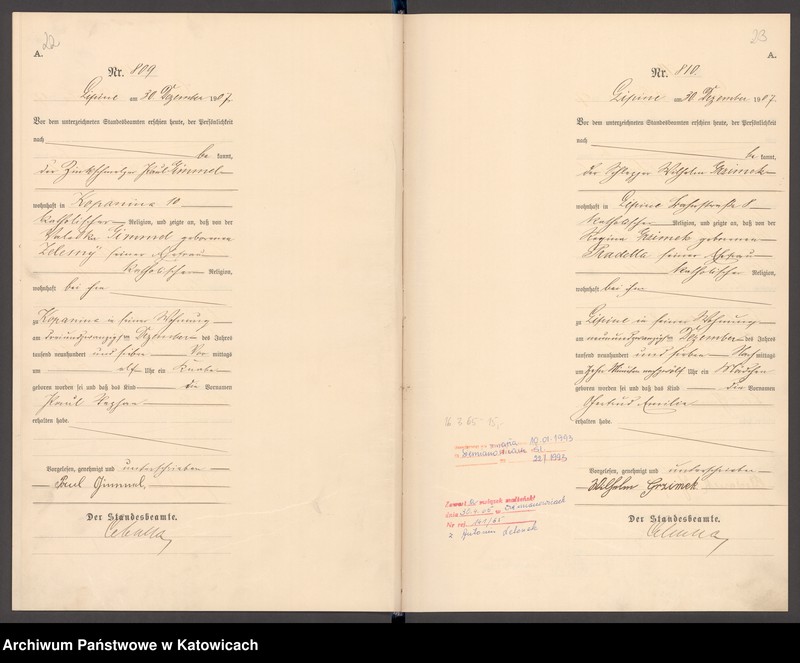 22
A.
Nr. 809.
Lipine am 30 Dezember 1907.
Vor dem unterzeichneten Standesbeamten erschien heute, der Persönlichkeit
nach
be kannt,
der Zinkschmelzer Paul Gimmel
wohnhaft in Kopanina 10
katholischer Religion, und zeigte an, daß von der
Valeska Gimmel geborenen
Zelesny seiner Ehefrau
katholischer Religion,
wohnhaft bei ihm
zu Kopanina in seiner Wohnung
am Dezember des Jahres
tausend neunhundert und sieben Vor mittags
um elf Uhr ein Knabe
geboren worden sei und daß das Kind die Vornamen
Paul
erhalten habe.
Vorgelesen, genehmigt und unterschrieben
Paul Gimmel.
Der Standesbeamte.
23
A.
Nr. 810.
Lipine am 30 Dezember 1907.
Vor dem unterzeichneten Standesbeamten erschien heute, der Persönlichkeit
nach
be kannt,
der Schlepper Wilhelm Grzimek
wohnhaft in Lipine Bahnstraße 8
katholischer Religion, und zeigte an, daß von der
Regina Grzimek geborenen
Pradella seiner Ehefrau
katholischer Religion,
wohnhaft bei ihm
zu Lipine in seiner Wohnung
am neunundzwanzigsten Dezember des Jahres
tausend neunhundert und sieben Nach mittags
um zehn Minuten nach Uhr ein Mädchen
geboren worden sei und daß das Kind die Vornamen
Gertrud Emilie
erhalten habe.
Vorgelesen, genehmigt und unterschrieben
Wilhelm Grzimek
Der Standesbeamte.
Zawarł związek małżeński
dnia w Siemianowicach
Nr rej.
z Antonim
Archiwum Państwowe w Katowicach